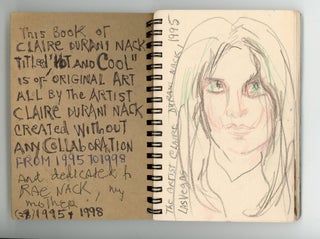 THIS BOOK OF
CLAIRE DURANI NACK
TITLED "HOT AND COOL"
IS OF ORIGINAL ART
ALL BY THE ARTIST
CLAIRE DURANI NACK
CREATED WITHOUT
ANY COLLABORATION
FROM 1995 TO 1998
And dedicated to
RAE NACK, my
mother
1995 + 1998
THE ARTIST CLAIRE DURANI NACK, 1995
LAS VEGAS